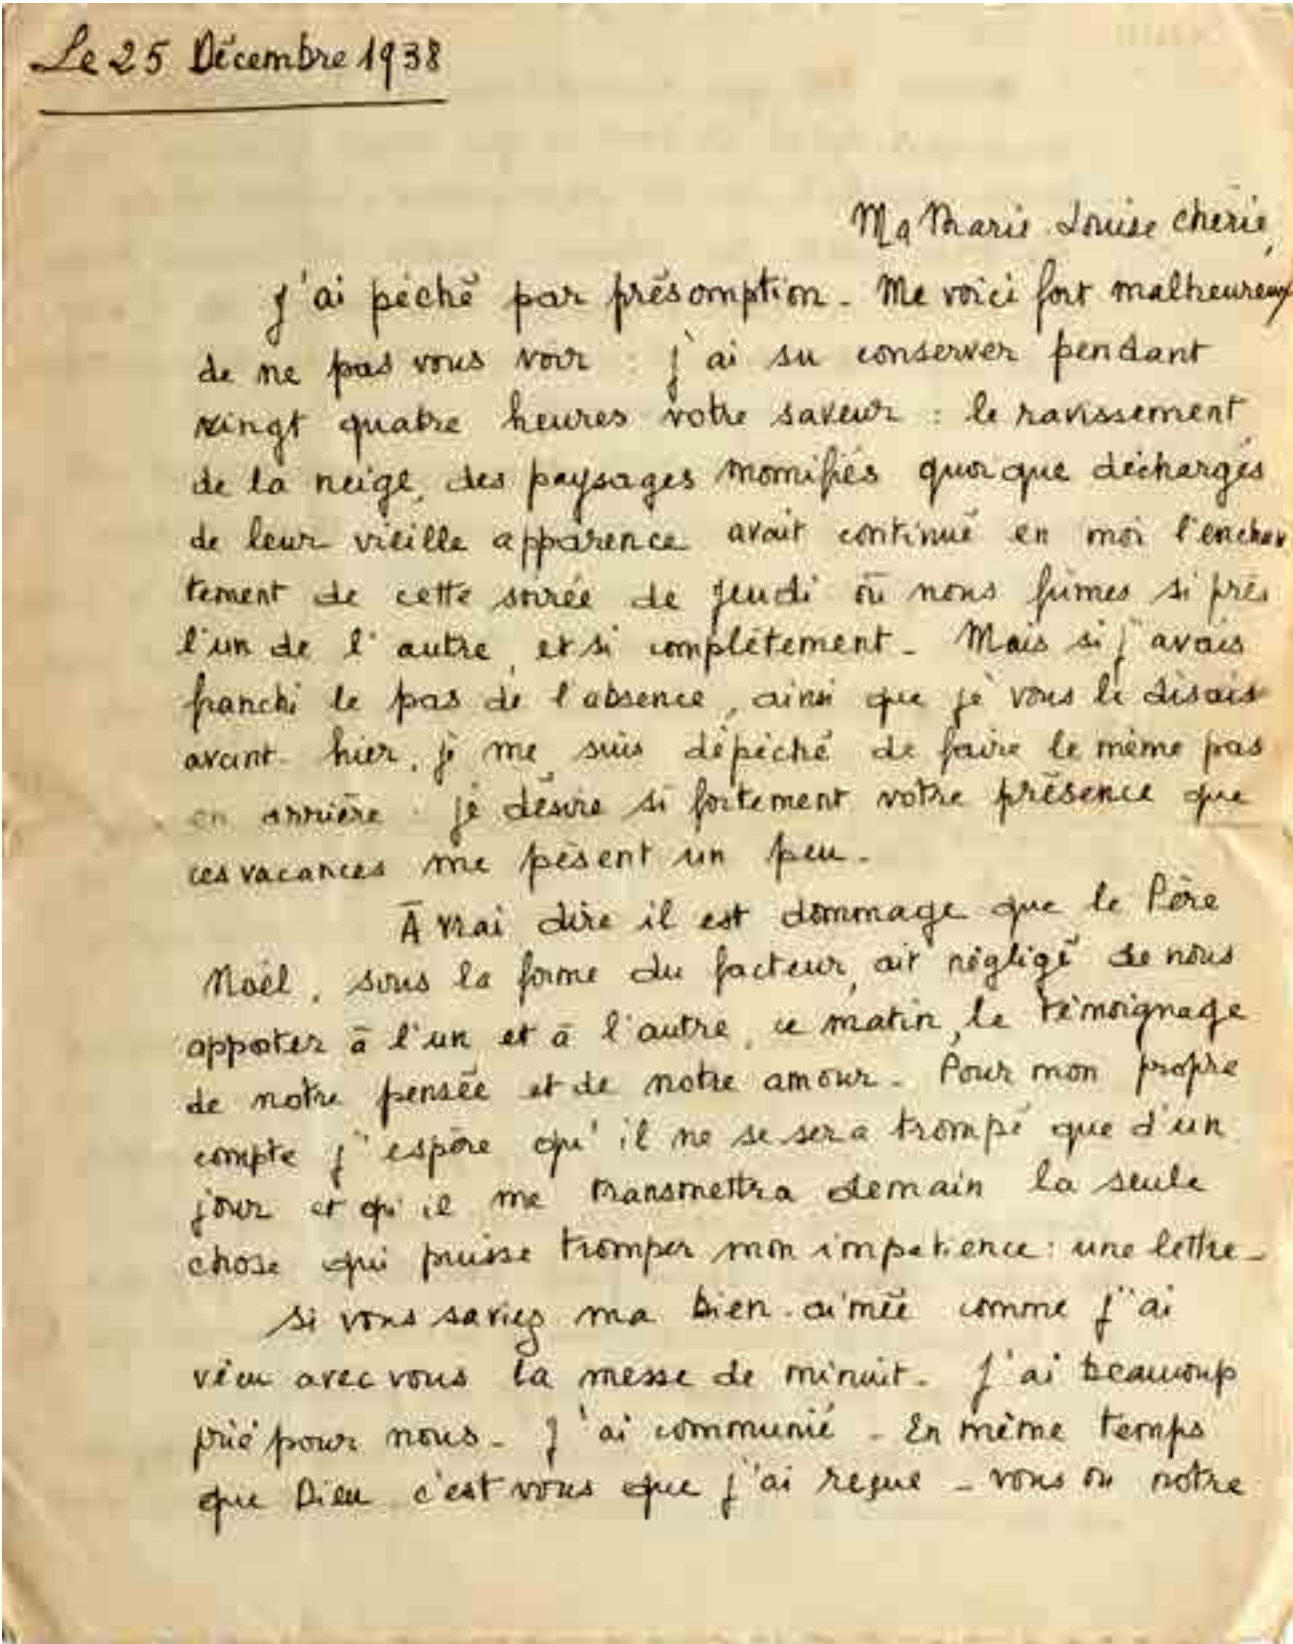 Le 25 Décembre 1938
Ma Marie Louise chérie,
J'ai péché par présomption. Me voici fort malheureux
de ne pas vous voir : j'ai su conserver pendant
vingt quatre heures votre saveur : le ravissement
de la neige, des paysages momifiés quoique déchargés
de leur vieille apparence avait continué en moi l'enchan
tement de cette soirée de jeudi où nous fûmes si près
l'un de l'autre, et si complètement. Mais si j'avais
franchi le pas de l'absence, ainsi que je vous le disais
avant-hier, je me suis dépêché de faire le même pas
en arrière : je désire si fortement votre présence que
ces vacances me pèsent un peu.
À vrai dire il est dommage que le Père
Noël, sous la forme du facteur, ait négligé de nous
apporter à l'un et à l'autre, ce matin, le témoignage
de notre pensée et de notre amour. Pour mon propre
compte j'espère qu'il ne se sera trompé que d'un
jour et qu'il me transmettra demain la seule
chose qui puisse tromper mon impatience : une lettre.
Si vous saviez ma bien-aimée comme j'ai
vécu avec vous la messe de minuit. J'ai beaucoup
prié pour nous. J'ai communié. En même temps
que Dieu c'est vous que j'ai reçue - vous ou notre